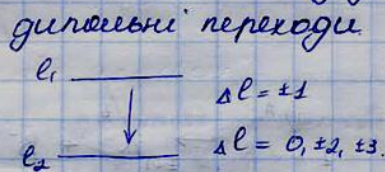 дипольні переходи
l₁
Δl = ±1
l₂ Δl = 0, ±2, ±3.